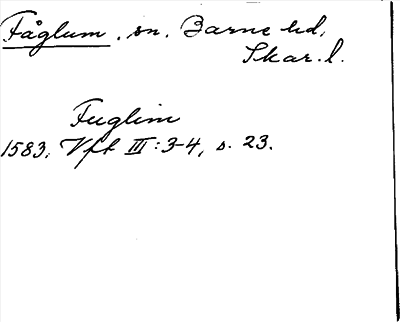 Fåglum, sn. Barne hd,
Skar. l.
Fuglim
1583. Vft III:3-4, s. 23.